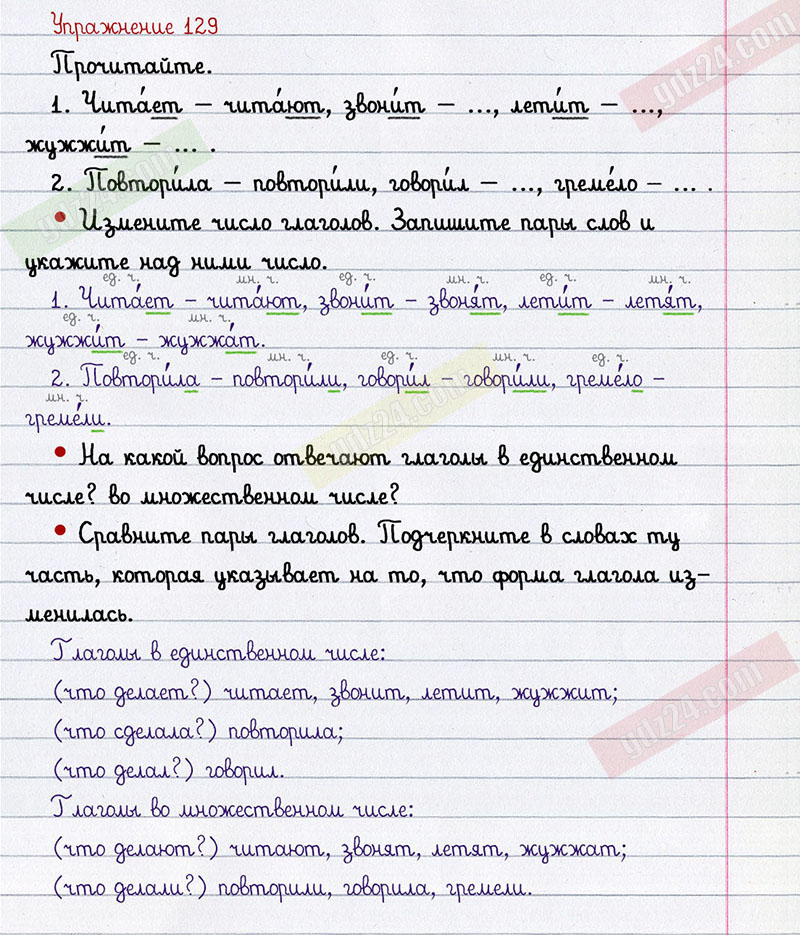 Упражнение 129
Прочитайте.
1. Чита́ет – чита́ют, звони́т – ..., лети́т – ...,
жужжи́т – ... .
2. Повтори́ла – повтори́ли, говори́л – ..., греме́ло – ... .
• Измените число глаголов. Запишите пары слов и
укажите над ними число.
ед. ч. мн. ч. ед. ч. мн. ч. ед. ч. мн. ч.
1. Чита́ет – чита́ют, звони́т – звоня́т, лети́т – летя́т,
ед. ч. мн. ч.
жужжи́т – жужжа́т.
ед. ч. мн. ч. ед. ч. мн. ч. ед. ч.
2. Повтори́ла – повтори́ли, говори́л – говори́ли, греме́ло –
мн. ч.
греме́ли.
• На какой вопрос отвечают глаголы в единственном
числе? во множественном числе?
• Сравните пары глаголов. Подчеркните в словах ту
часть, которая указывает на то, что форма глагола из-
менилась.
Глаголы в единственном числе:
(что делает?) читает, звонит, летит, жужжит;
(что сделала?) повторила;
(что делал?) говорил.
Глаголы во множественном числе:
(что делают?) читают, звонят, летят, жужжат;
(что делали?) повторили, говорила, гремели.
gdz24.com
gdz24.com
gdz24.com
gdz24.com